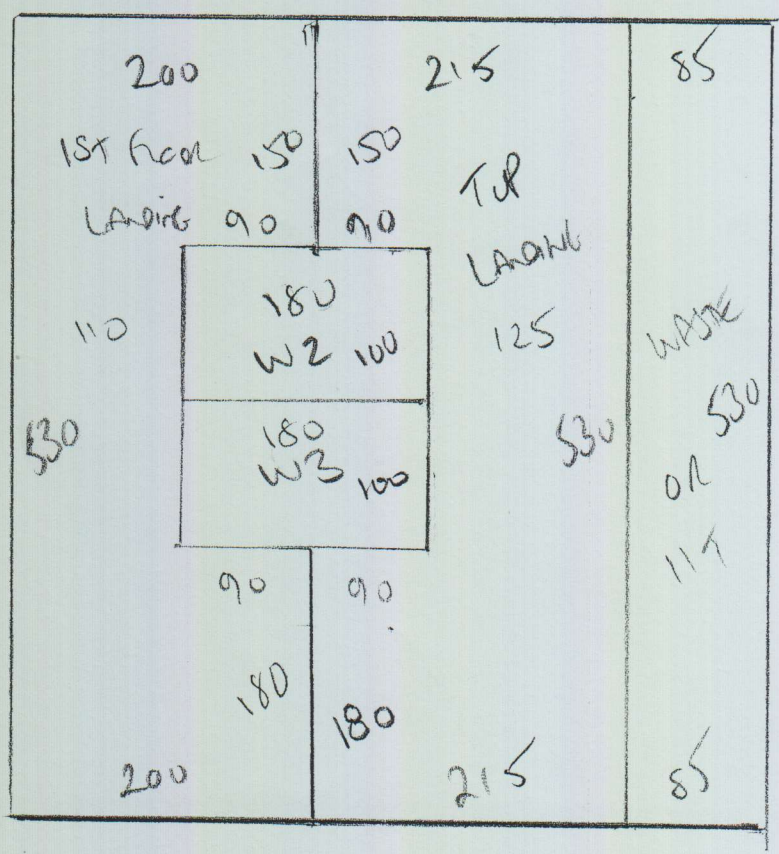 200 215 85
1ST FLOOR 150 150 TOP
LANDING 90 90 LANDING
180
110 W2 100 125 WASTE
530 180 530 530
W3 100 OR
11T
90 90
180 180
200 215 85